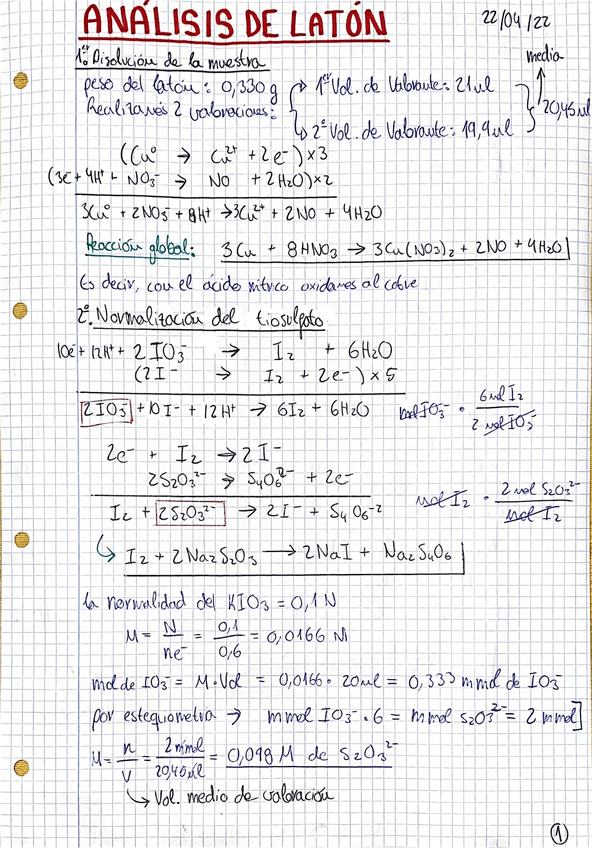 ANÁLISIS DE LATÓN
22/04/22
1º Disolución de la muestra
peso del latón: 0,330 g
Realizamos 2 valoraciones:
1er Vol. de Valorante: 21 ml
2º Vol. de Valorante: 19,9 ml
media
20,45 ml
(Cuº → Cu²⁺ + 2e⁻) × 3
(3e⁻ + 4H⁺ + NO₃⁻ → NO + 2H₂O) × 2
3Cuº + 2NO₃⁻ + 8H⁺ → 3Cu²⁺ + 2NO + 4H₂O
Reacción global: 3Cu + 8HNO₃ → 3Cu(NO₃)₂ + 2NO + 4H₂O
Es decir, con el ácido nítrico oxidamos al cobre
2º. Normalización del tiosulfato
10e⁻ + 12H⁺ + 2IO₃⁻ → I₂ + 6H₂O
(2I⁻ → I₂ + 2e⁻) × 5
2IO₃⁻ + 10I⁻ + 12H⁺ → 6I₂ + 6H₂O
mol IO₃⁻ · 6 mol I₂ / 2 mol IO₃⁻
2e⁻ + I₂ → 2I⁻
2S₂O₃²⁻ → S₄O₆²⁻ + 2e⁻
I₂ + 2S₂O₃²⁻ → 2I⁻ + S₄O₆⁻²
mol I₂ · 2 mol S₂O₃²⁻ / mol I₂
↳ I₂ + 2Na₂S₂O₃ → 2NaI + Na₂S₄O₆
La normalidad del KIO₃ = 0,1 N
M = N / ne⁻ = 0,1 / 0,6 = 0,0166 M
mol de IO₃⁻ = M · Vol = 0,0166 · 20 ml = 0,333 mmol de IO₃⁻
por estequiometría → mmol IO₃⁻ · 6 = mmol S₂O₃²⁻ = 2 mmol]
M = n / V = 2 mmol / 20,40 ml = 0,098 M de S₂O₃²⁻
↳ Vol. medio de valoración
1